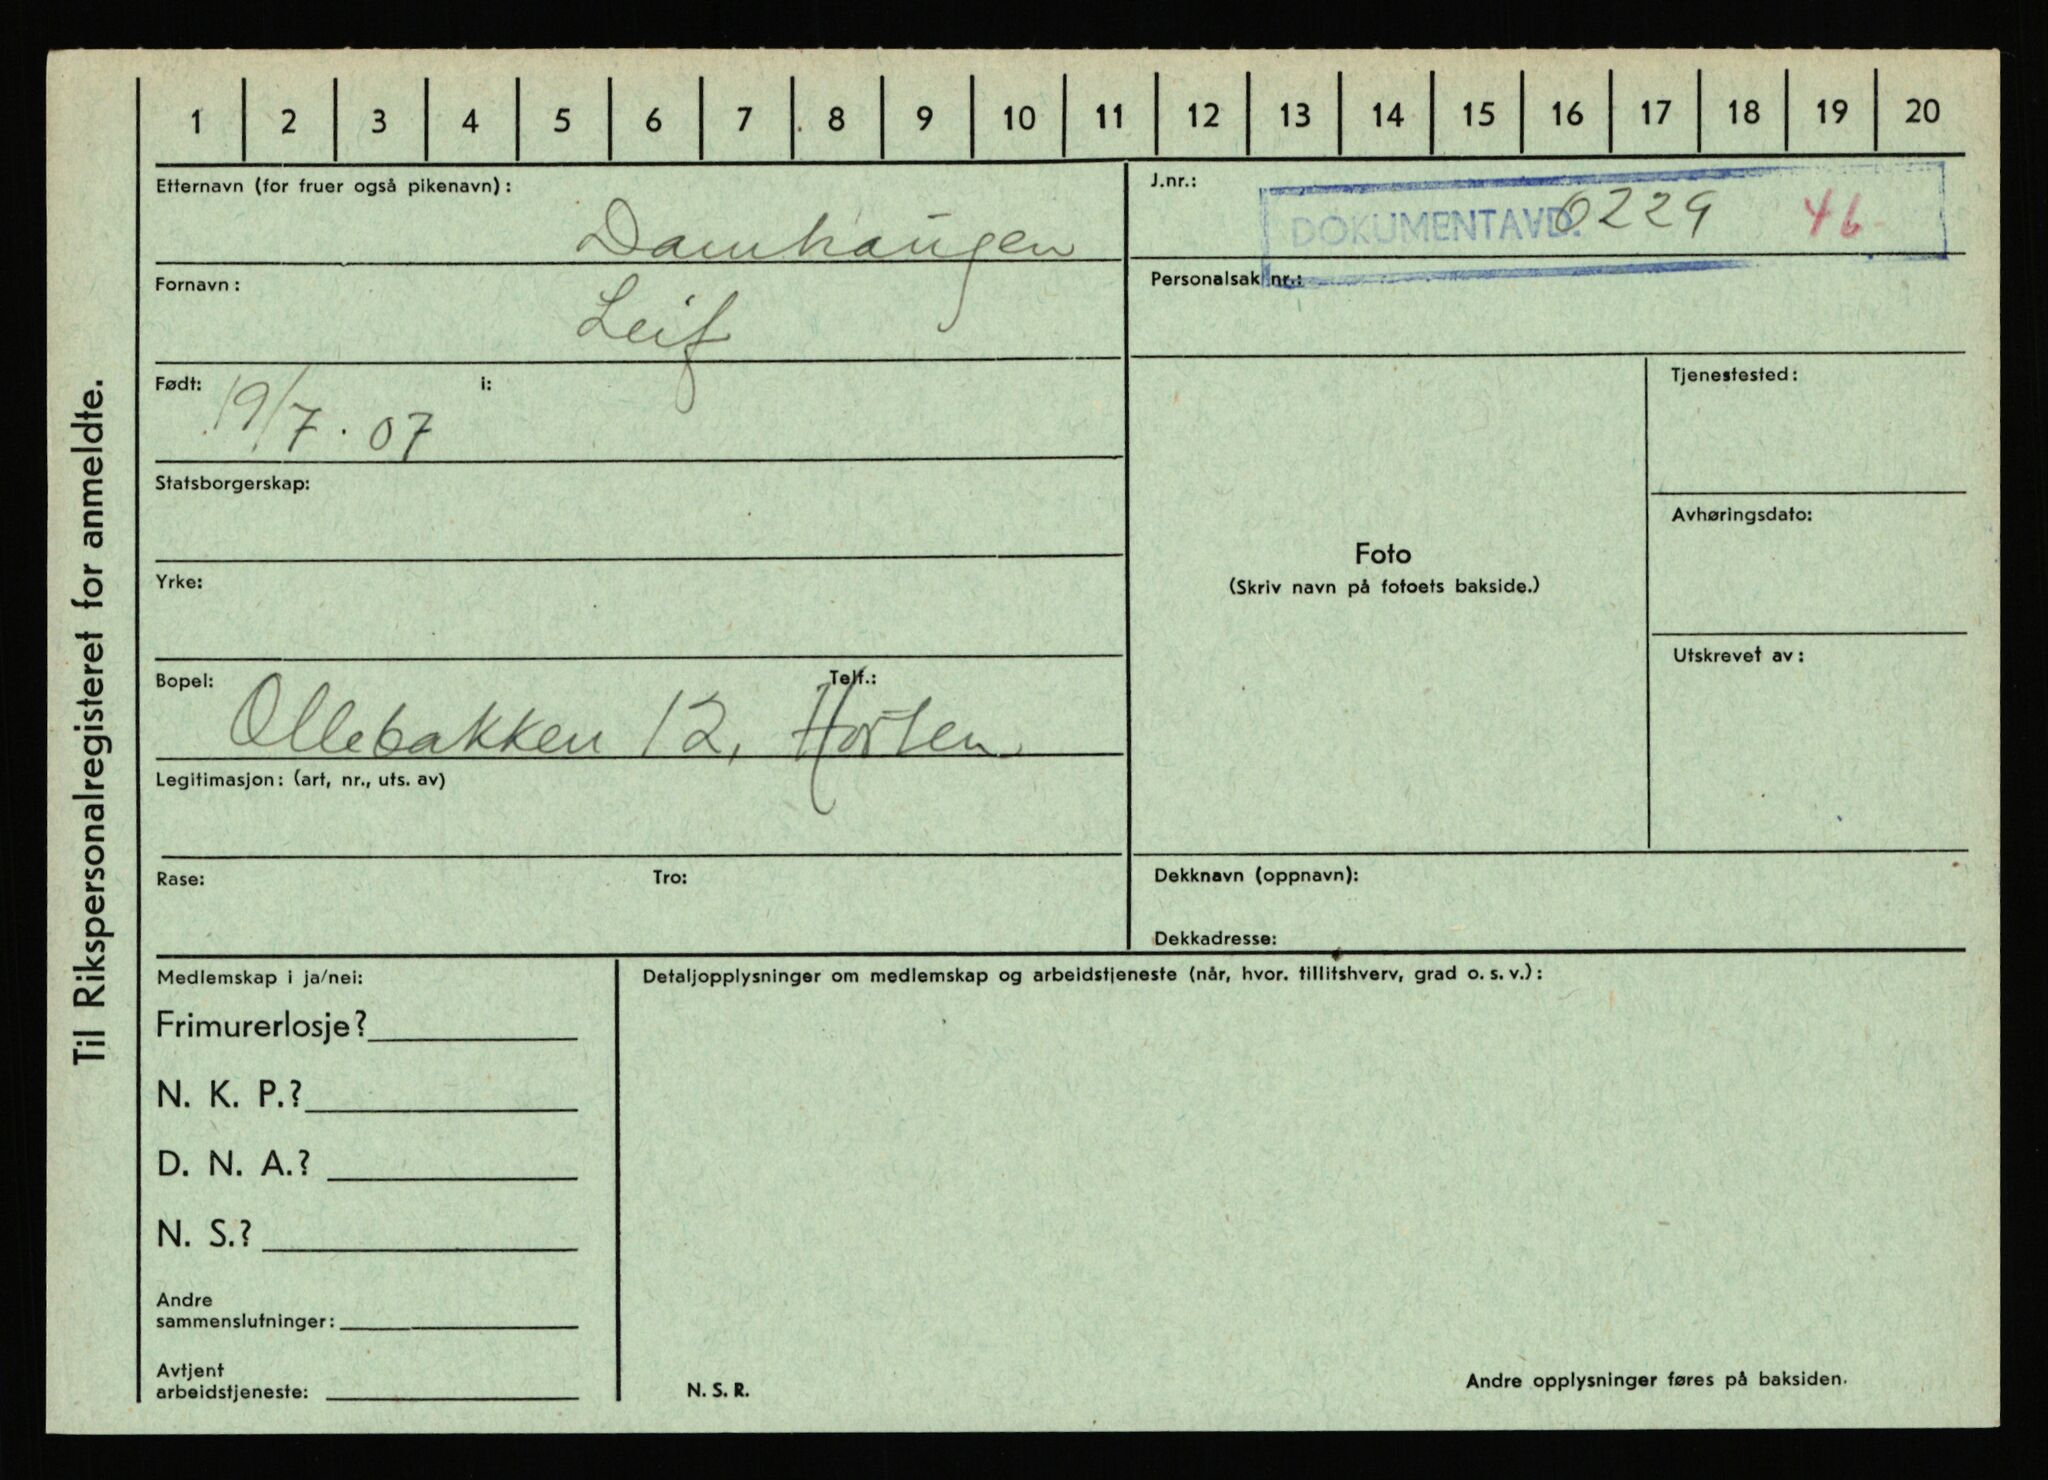 Til Rikspersonalregisteret for anmeldte.
1 2 3 4 5 6 7 8 9 10 11 12 13 14 15 16 17 18 19 20
Etternavn (for fruer også pikenavn):
Damhaugen
J.nr.:
DOKUMENTAVD. 0229 46
Fornavn:
Leif
Personalsak nr.:
Født: i:
19/7.07
Tjenestested:
Statsborgerskap:
Avhøringsdato:
Foto
(Skriv navn på fotoets bakside.)
Yrke:
Utskrevet av:
Bopel: Telf.:
Ollebakken 12, Horten
Legitimasjon: (art, nr., uts. av)
Rase: Tro:
Dekknavn (oppnavn):
Dekkadresse:
Medlemskap i ja/nei:
Frimurerlosje?
N. K. P.?
D. N. A.?
N. S.?
Andre
sammenslutninger:
Avtjent
arbeidstjeneste:
Detaljopplysninger om medlemskap og arbeidstjeneste (når, hvor. tillitshverv, grad o. s. v.):
N. S. R.
Andre opplysninger føres på baksiden.